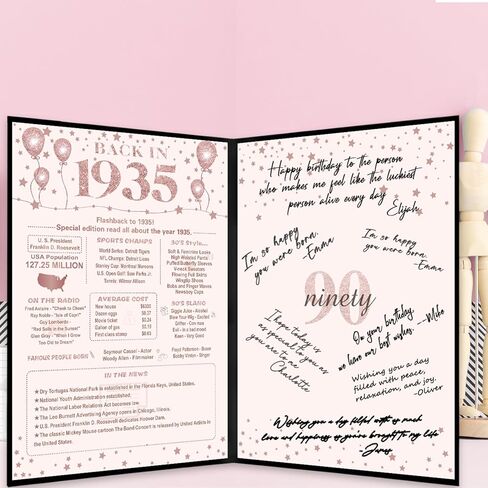 BACK IN
1935
Flashback to 1935!
Special edition read all about the year 1935.
U. S. President
Franklin D. Roosevelt
USA Population
127.25 MILLION
SPORTS CHAMPS
World Series: Detroit Tigers
NFL Change: Detroit Lions
Stanley Cup: Montreal Maroons
U.S. Open Golf: Sam Parks Jr.
Tennis: Wilmer Allison
30'S Style...
Soft & Feminine Looks
High Waisted Pants
Puffed Butterfly Sleeves
V-neck Sweaters
Flowing Full Skirts
Wingtip Shoes
Bobs and Finger Waves
Newsboy Caps
ON THE RADIO
Fred Astaire - "Cheek to Cheek"
Ray Noble - "Isle of Capri"
Guy Lombardo -
"Red Sails in the Sunset"
Glen Gray - "When I Grow
Too Old to Dream"
AVERAGE COST
New house $6300
Dozen eggs $0.37
Movie ticket $0.24
Gallon of gas $0.19
First-class stamp $0.03
30'S SLANG
Giggle Juice - Alcohol
Blow Your Wig - Excited
Drifter - Con man
Evil - in a bad mood
Keen - Very Good
FAMOUS PEOPLE BORN
Seymour Cassel - Actor
Woody Allen - Filmmaker
Floyd Patterson - Boxer
Bobby Vinton - Singer
IN THE NEWS
Dry Tortugas National Park is established in the Florida Keys, United States.
National Youth Administration established.
The National Labor Relations Act becomes law
The Leo Burnett Advertising Agency opens in Chicago, Illinois.
U.S. President Franklin D. Roosevelt dedicates Hoover Dam.
The classic Mickey mouse cartoon The Band Concert is released by United Artists in
the United States.
Happy birthday to the person
who makes me feel like the luckiest
person alive every day
Elijah
I'm so happy
you were born.
-Emma
I'm so happy
you were born.
-Emma
90
ninety
I hope today is
as special as you
are to me
Charlotte
On your birthday,
we have our best wishes. -Mike
Wishing you a day
filled with peace,
relaxation, and joy.
-Oliver
Wishing you a day filled with as much
love and happiness as you've brought to my life
-James